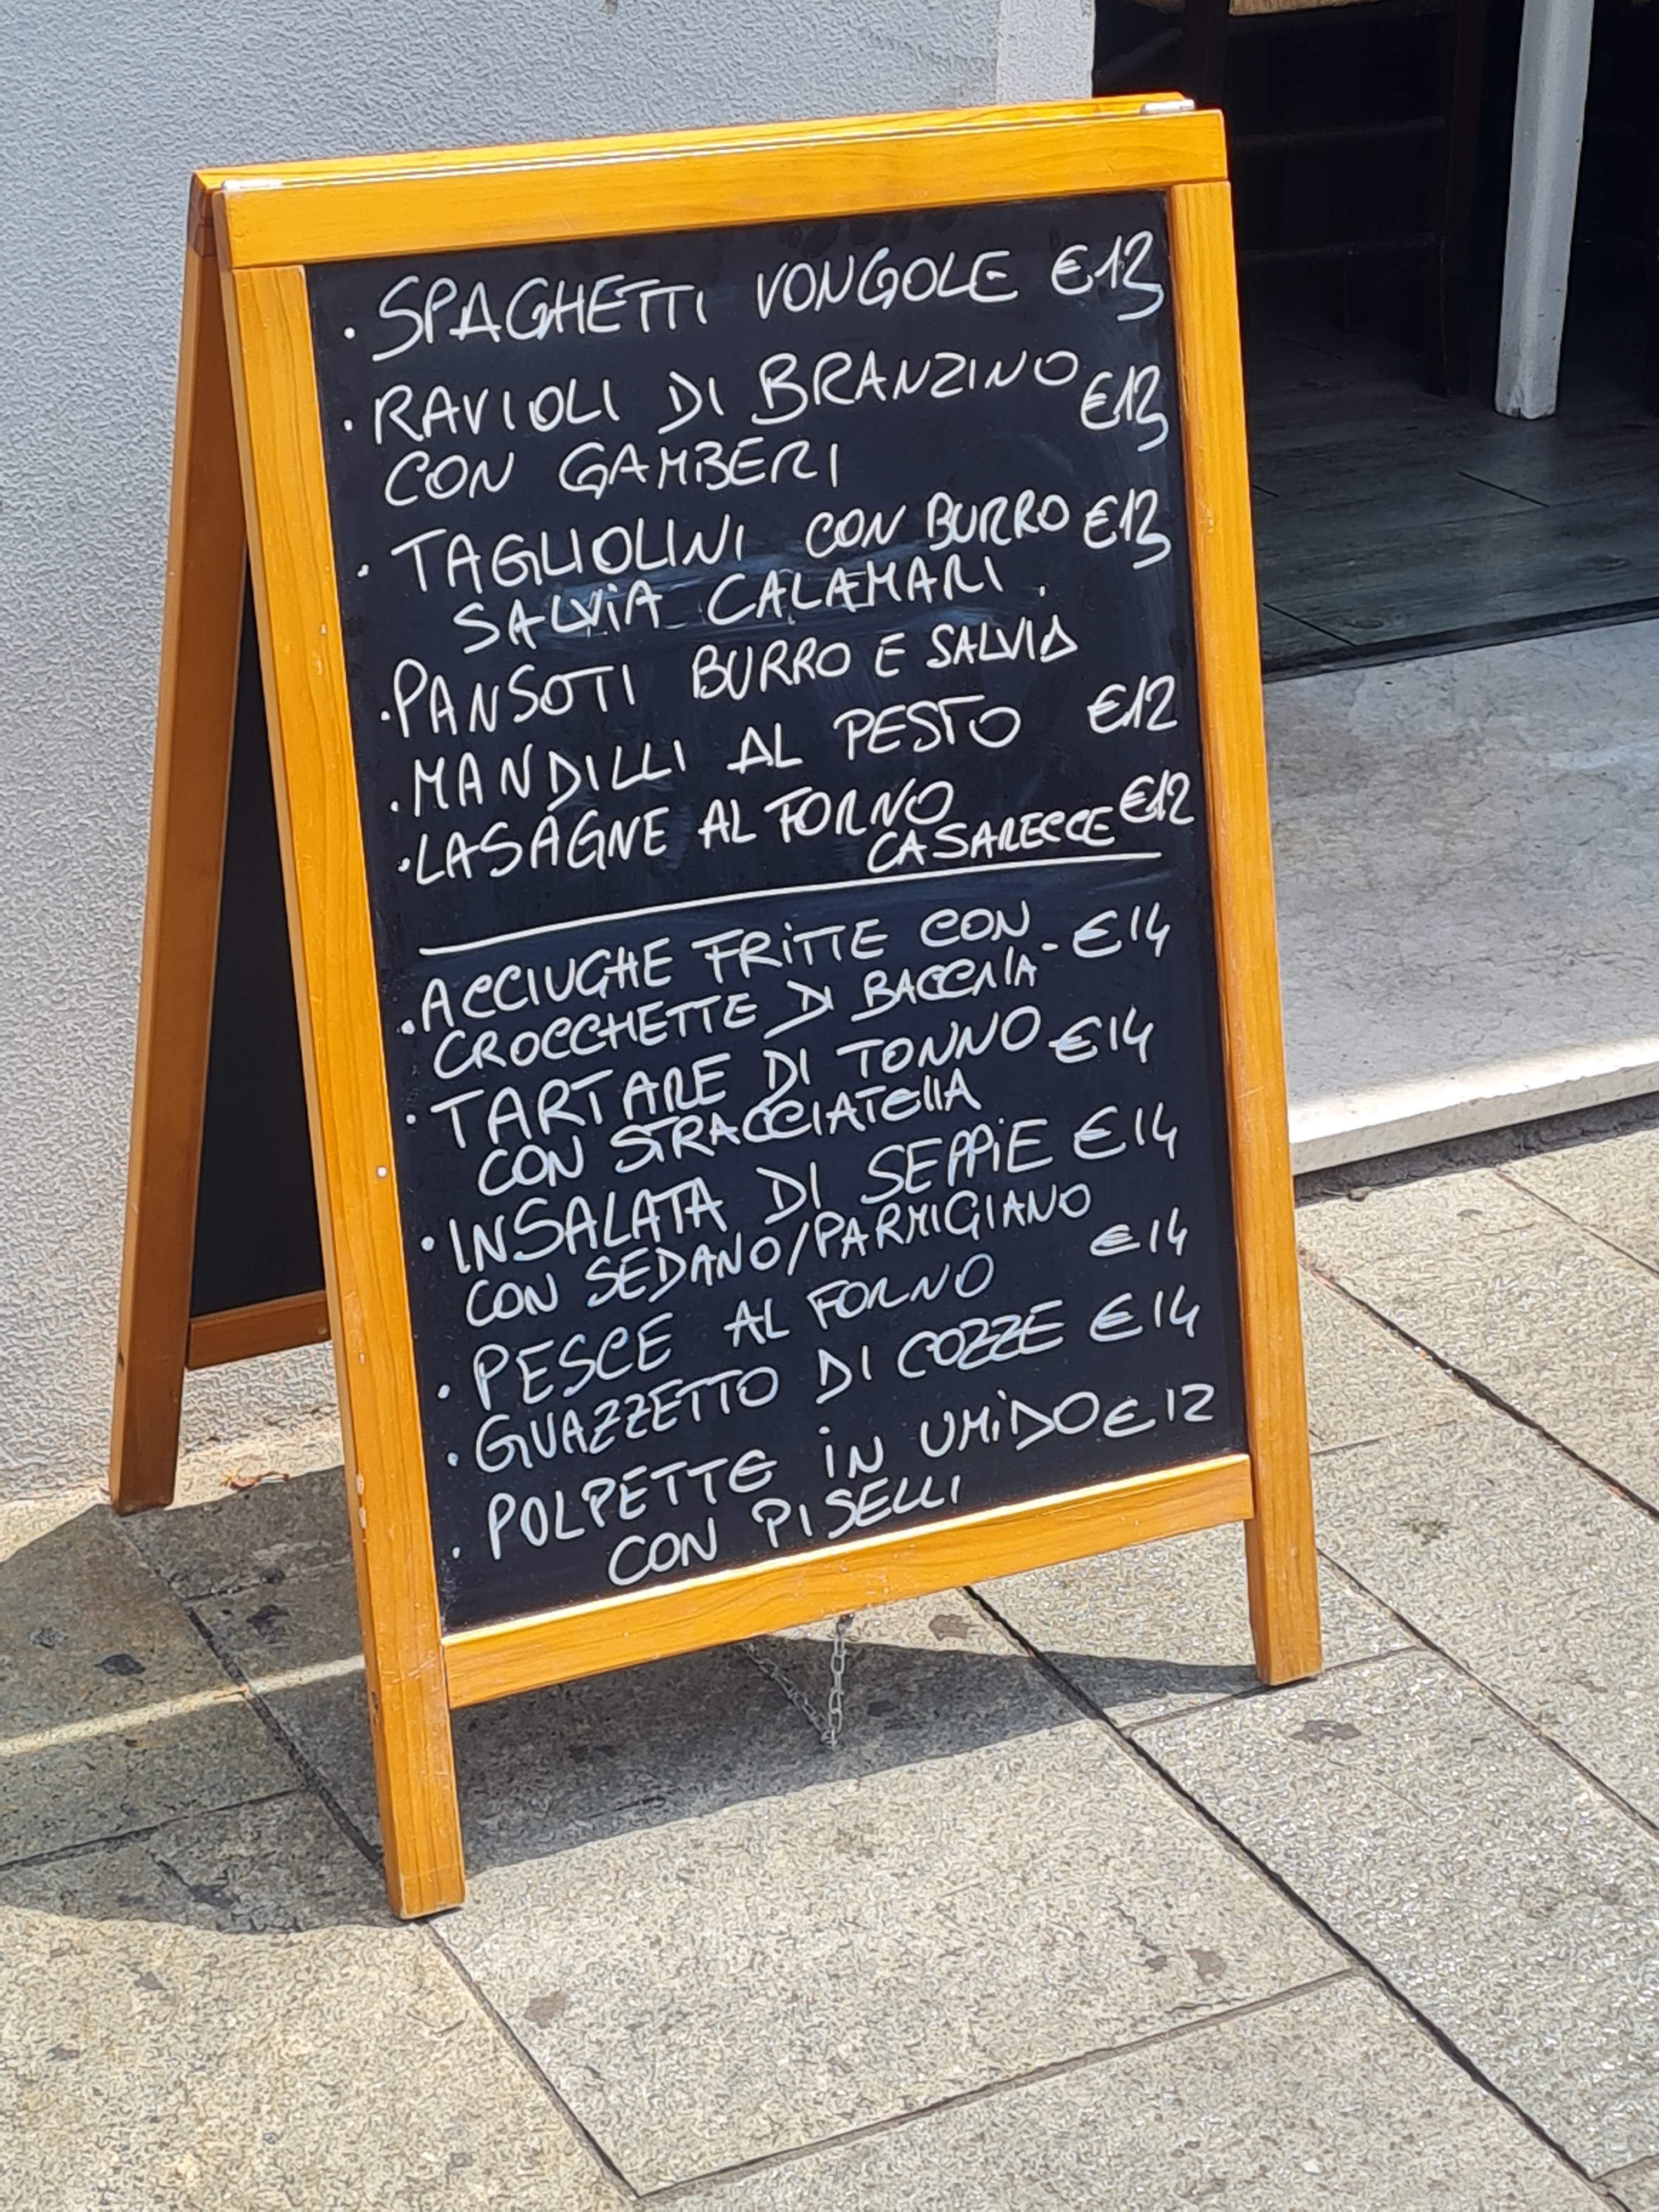 · SPAGHETTI VONGOLE €13
· RAVIOLI DI BRANZINO €13
CON GAMBERI
· TAGLIOLINI CON BURRO €13
SALVIA CALAMARI .
· PANSOTI BURRO E SALVIA
· MANDILLI AL PESTO €12
· LASAGNE AL FORNO
CASARECCE €12
· ACCIUGHE FRITTE CON
CROCCHETTE DI BACCALA - €14
· TARTARE DI TONNO €14
CON STRACCIATELLA
· INSALATA DI SEPPIE €14
CON SEDANO/PARMIGIANO
· PESCE AL FORNO €14
· GUAZZETTO DI COZZE €14
· POLPETTE IN UMIDO €12
CON PISELLI